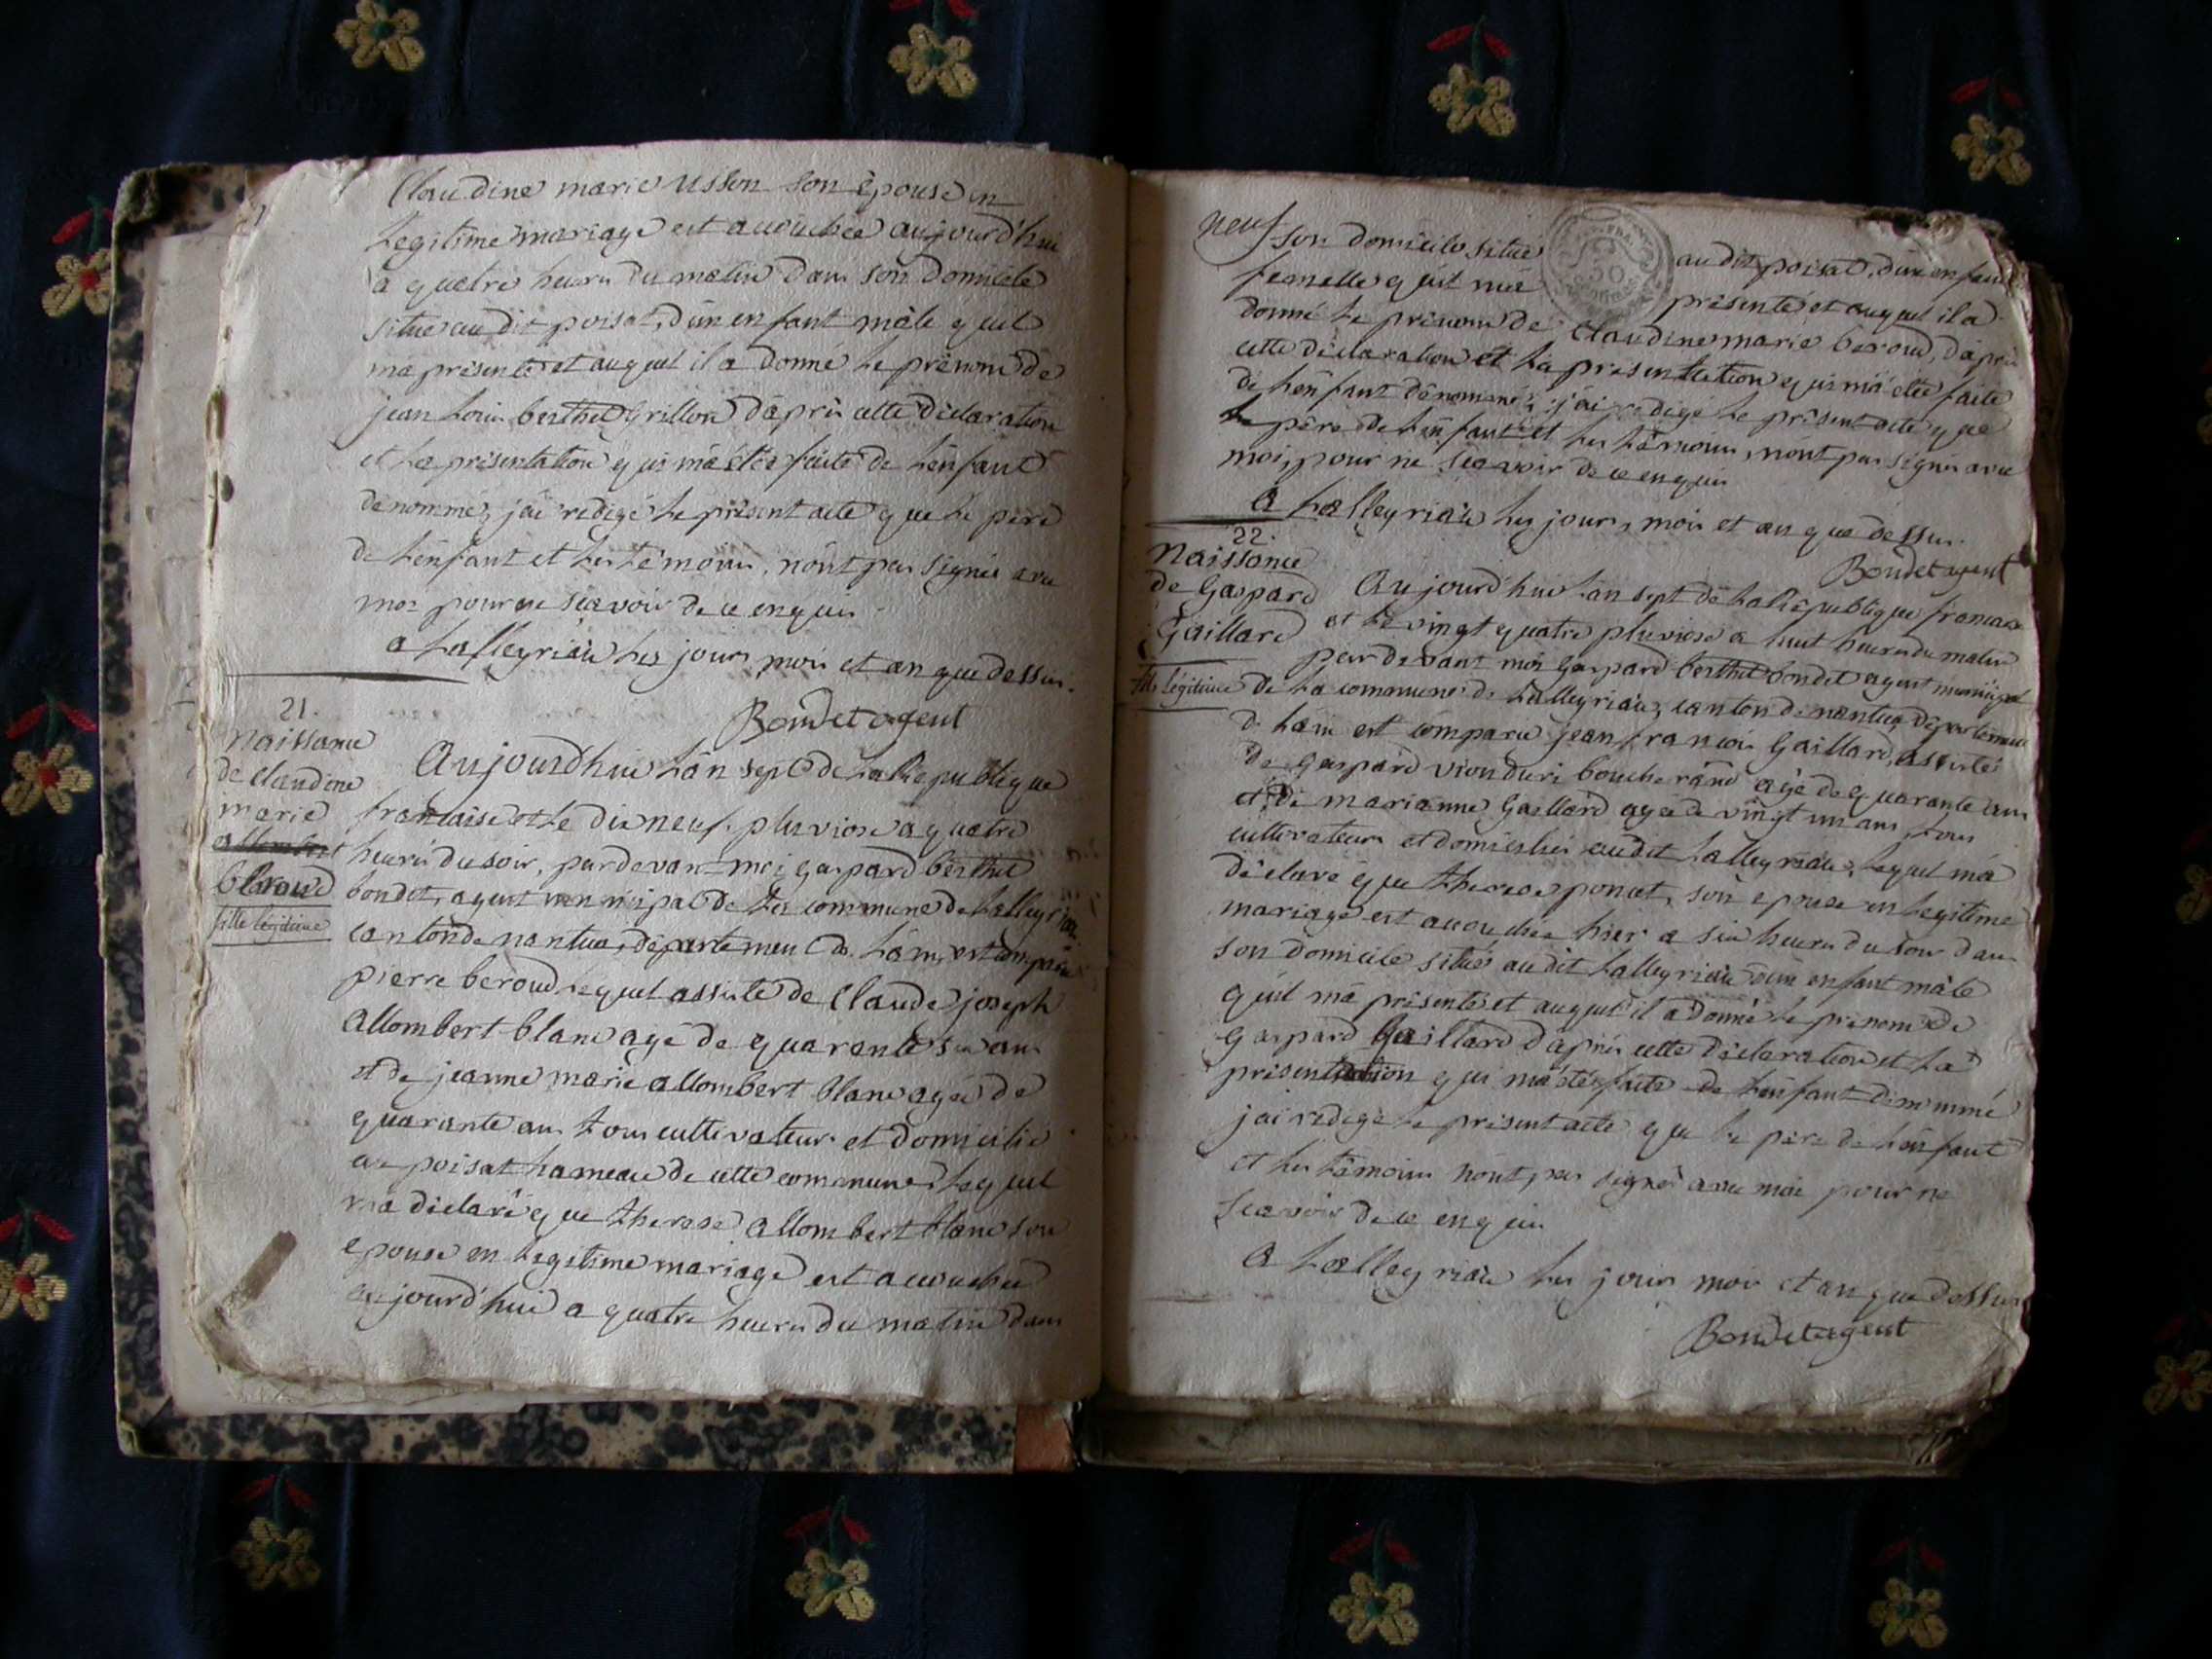 Claudine marie usson son épouse en
Legitime mariage est accouchée aujourd'hui
a quatre heures du matin dans son domicile
situé audit poisat, d'un enfant mâle quil
ma présenté et auquel il a donné le prénom de
jean Louis berthet Grillon d'après cette déclaration
et la présentation qui ma étée faite de l'enfant
dénommé, j'ai redigé le présent acte que le père
de l'enfant et les témoins, n'ont pas signés avec
moi pour ne scavoir de ce enquis
a Lalleyriat les jour, mois et an que dessus.
Bondet agent
21.
Naissance
de Claudine
marie
allombert
béroud
fille légitime
Aujourd'hui L'an sept de La République
francaise et le dix neuf pluviose a quatre
heures du soir, pardevant moi gaspard berthet
bondet, agent municipal de la commune de Lalleyriat
canton de nantua, département de L'ain, est comparu
pierre beroud lequel assisté de Claude joseph
allombert blanc agé de quarante six ans
et de jeanne marie allombert blanc agée de
quarante ans tous cultivateurs et domiciliés
au poisat hameau de cette commune, Lequel
ma déclaré que therese allombert blanc son
epouse en Legitime mariage est accouchée
aujourd'hui a quatre heures du matin dans
neuf
son domicile situé audit poisat, d'un enfant
femelle quil m'a présenté et auquel il a
donné le prénom de Claudine marie beroud, d'après
cette déclaration et la présentation qui m'a étée faite
de l'enfant dénommé, j'ai redigé le présent acte que
le père de l'enfant et les témoins, n'ont pas signés avec
moi, pour ne scavoir de ce enquis
a Lalleyriat les jours, mois et an que dessus.
Bondet agent
22.
Naissance
de Gaspard
Gaillard
fils légitime
Aujourd'hui L'an sept de La République francaise
et le vingt quatre pluviose a huit heures du matin
par devant moi Gaspard berthet bondet agent municipal
de La commune de Lalleyriat, canton de nantua, département
de L'ain est comparu jean francois Gaillard, assisté
de gaspard viondury boucherand agé de quarante ans
et de marianne Gaillard agée de vingt un ans, tous
cultivateurs et domiciliés audit Lalleyriat, lequel m'a
déclaré que therese poncet, son epouse en legitime
mariage est accouchée hier a six heures du soir dans
son domicile situé audit Lalleyriat d'un enfant mâle
quil m'a présenté et auquel il a donné le prénom de
gaspard Gaillard d'après cette déclaration et La
présentation qui m'a étée faite de l'enfant dénommé
j'ai redigé le présent acte que le père de l'enfant
et les témoins n'ont pas signés avec moi pour ne
scavoir de ce enquis
a Lalleyriat les jour mois et an que dessus
Bondet agent